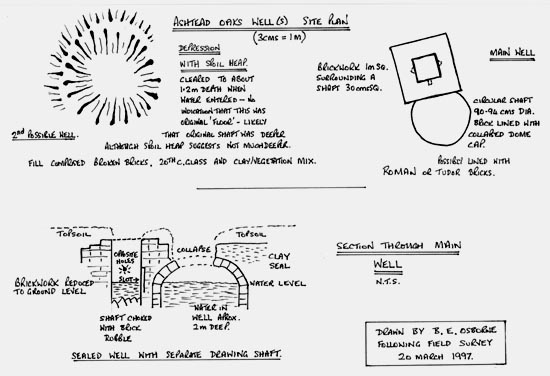 ASHTEAD OAKS WELL(S) SITE PLAN
(3CMS = 1M)
DEPRESSION
WITH SPOIL HEAP.
CLEARED TO ABOUT
1·2M DEATH WHEN
WATER ENTERED - NO
INDICATION THAT THIS WAS
ORIGINAL 'FLOOR' - LIKELY
THAT ORIGINAL SHAFT WAS DEEPER
ALTHOUGH SPOIL HEAP SUGGESTS NOT MUCH DEEPER.
2nd POSSIBLE WELL.
FILL COMPRISED BROKEN BRICKS, 20TH C. GLASS AND CLAY/VEGETATION MIX.
MAIN WELL
BRICKWORK 1M SQ.
SURROUNDING A
SHAFT 30CMS SQ.
CIRCULAR SHAFT
90-94 CMS DIA.
BRICK LINED WITH
COLLARED DOME
CAP.
POSSIBLY LINED WITH
ROMAN OR TUDOR BRICKS.
TOPSOIL
OPPOSITE
HOLES
SLOT
COLLAPSE
TOPSOIL
CLAY
SEAL
WATER LEVEL
BRICKWORK REDUCED
TO GROUND LEVEL
SHAFT CHOKED
WITH BRICK
RUBBLE
WATER IN
WELL APROX.
2M DEEP.
SEALED WELL WITH SEPARATE DRAWING SHAFT.
SECTION THROUGH MAIN
WELL
N.T.S.
DRAWN BY B. E. OSBORNE
FOLLOWING FIELD SURVEY
20 MARCH 1997.